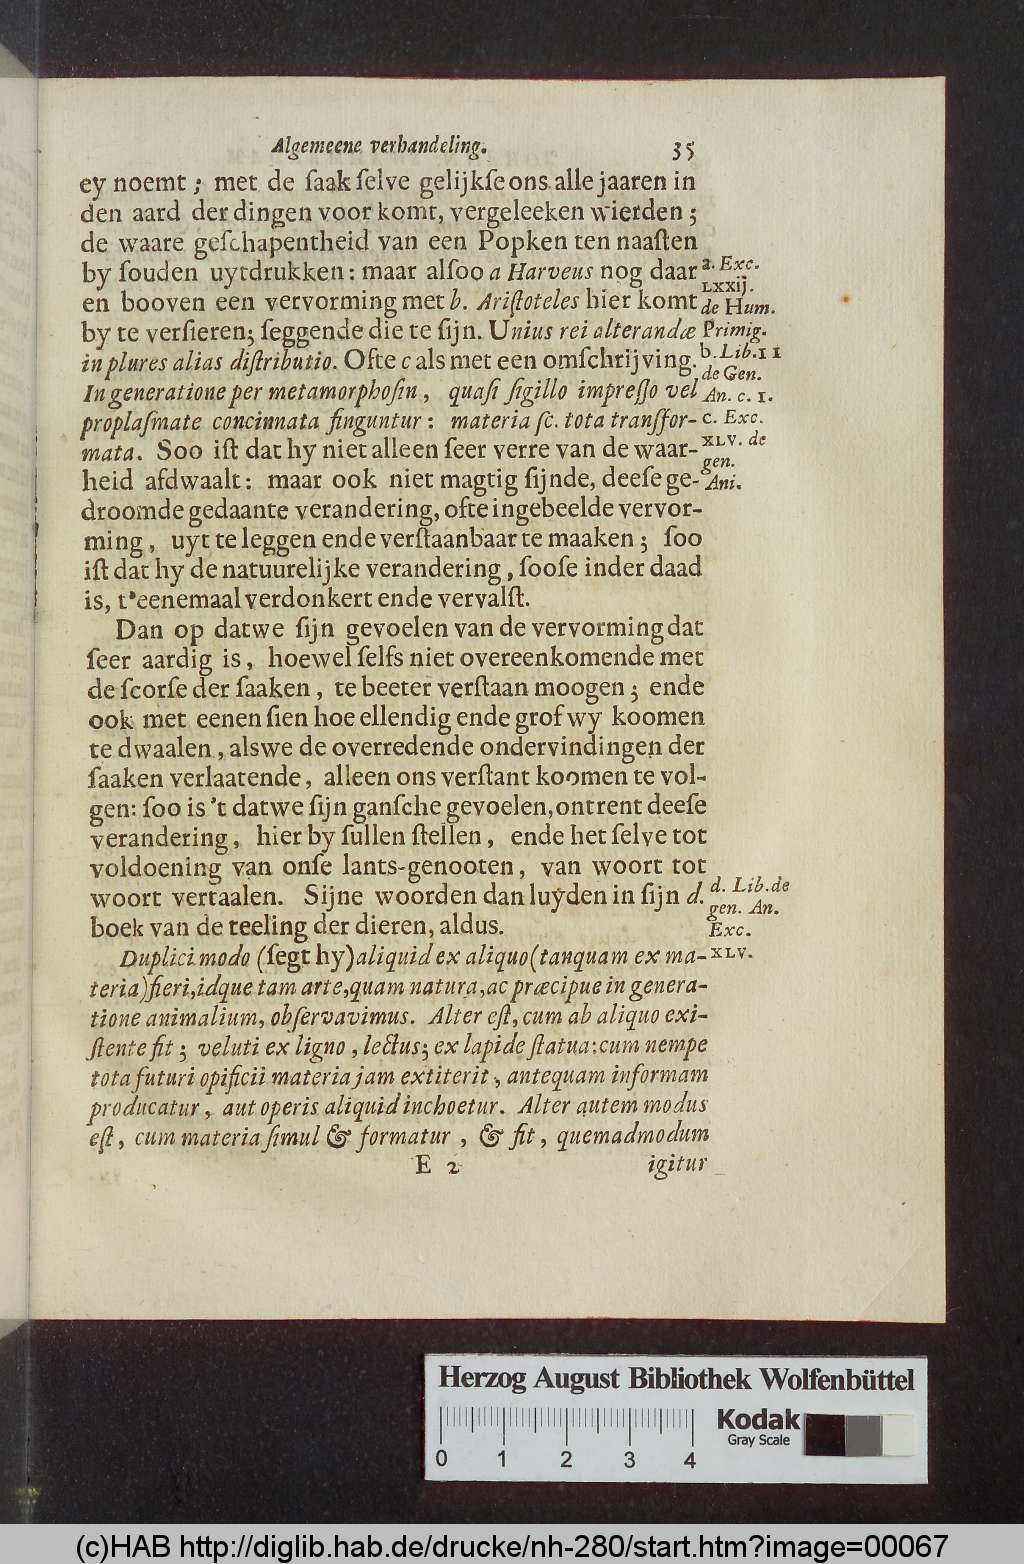 Algemeene verhandeling. 35
ey noemt; met de ſaak ſelve gelijkſe ons alle jaaren in
den aard der dingen voor komt, vergeleeken wierden;
de waare geſchapentheid van een Popken ten naaſten
by ſouden uytdrukken: maar alſoo a Harveus nog daar
en booven een vervorming met b. Ariſtoteles hier komt
by te verſieren; ſeggende die te ſijn. Unius rei alterandæ
in plures alias diſtributio. Ofte c als met een omſchrijving.
In generatione per metamorphoſin, quaſi ſigillo impreſſo vel
proplaſmate concinnata finguntur: materia ſc. tota tranſfor-
mata. Soo iſt dat hy niet alleen ſeer verre van de waar-
heid afdwaalt: maar ook niet magtig ſijnde, deeſe ge-
droomde gedaante verandering, ofte ingebeelde vervor-
ming, uyt te leggen ende verſtaanbaar te maaken; ſoo
iſt dat hy de natuurelijke verandering, ſooſe inder daad
is, t'eenemaal verdonkert ende vervalſt.
Dan op datwe ſijn gevoelen van de vervorming dat
ſeer aardig is, hoewel ſelfs niet overeenkomende met
de ſcorſe der ſaaken, te beeter verſtaan moogen; ende
ook met eenen ſien hoe ellendig ende grof wy koomen
te dwaalen, alswe de overredende ondervindingen der
ſaaken verlaatende, alleen ons verſtant koomen te vol-
gen: ſoo is 't datwe ſijn ganſche gevoelen, ontrent deeſe
verandering, hier by ſullen ſtellen, ende het ſelve tot
voldoening van onſe lants-genooten, van woort tot
woort vertaalen. Sijne woorden dan luyden in ſijn d.
boek van de teeling der dieren, aldus.
Duplici modo (ſegt hy) aliquid ex aliquo (tanquam ex ma-
teria) fieri, idque tam arte, quam natura, ac præcipue in genera-
tione animalium, obſervavimus. Alter eſt, cum ab aliquo exi-
ſtente fit; veluti ex ligno, lectus; ex lapide ſtatua: cum nempe
tota futuri opificii materia jam extiterit, antequam in formam
producatur, aut operis aliquid inchoetur. Alter autem modus
eſt, cum materia ſimul & formatur, & fit, quemadmodum
E 2 igitur
a. Exc.
LXXIJ.
de Hum.
Primig.
b. Lib. 11
de Gen.
An. c. 1.
c. Exc.
XLV. de
gen.
Ani.
d. Lib. de
gen. An.
Exc.
XLV.
Herzog August Bibliothek Wolfenbüttel
Kodak
Gray Scale
0 1 2 3 4
(c)HAB http://diglib.hab.de/drucke/nh-280/start.htm?image=00067